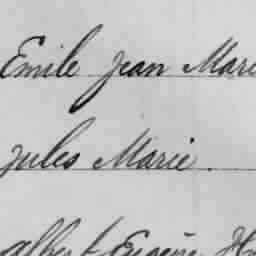 Emile Jean Mari
Jules Marie.
Albert Eugène H